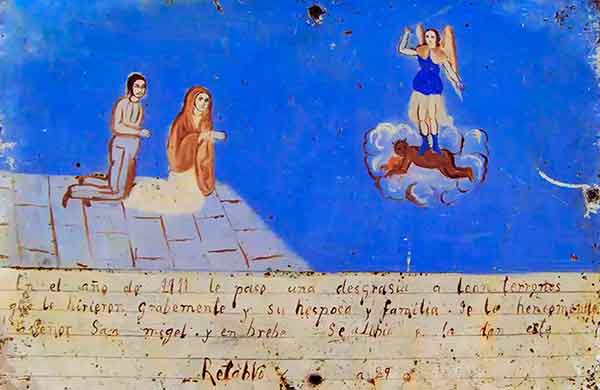 En el año de 1911 le paso una desgrasia a leon terrones
que le hirieron grabemente y su hesposa y familia se le hencomendo
a Señor San migel y en brebe se alibio e le dan este
Retablo a 29